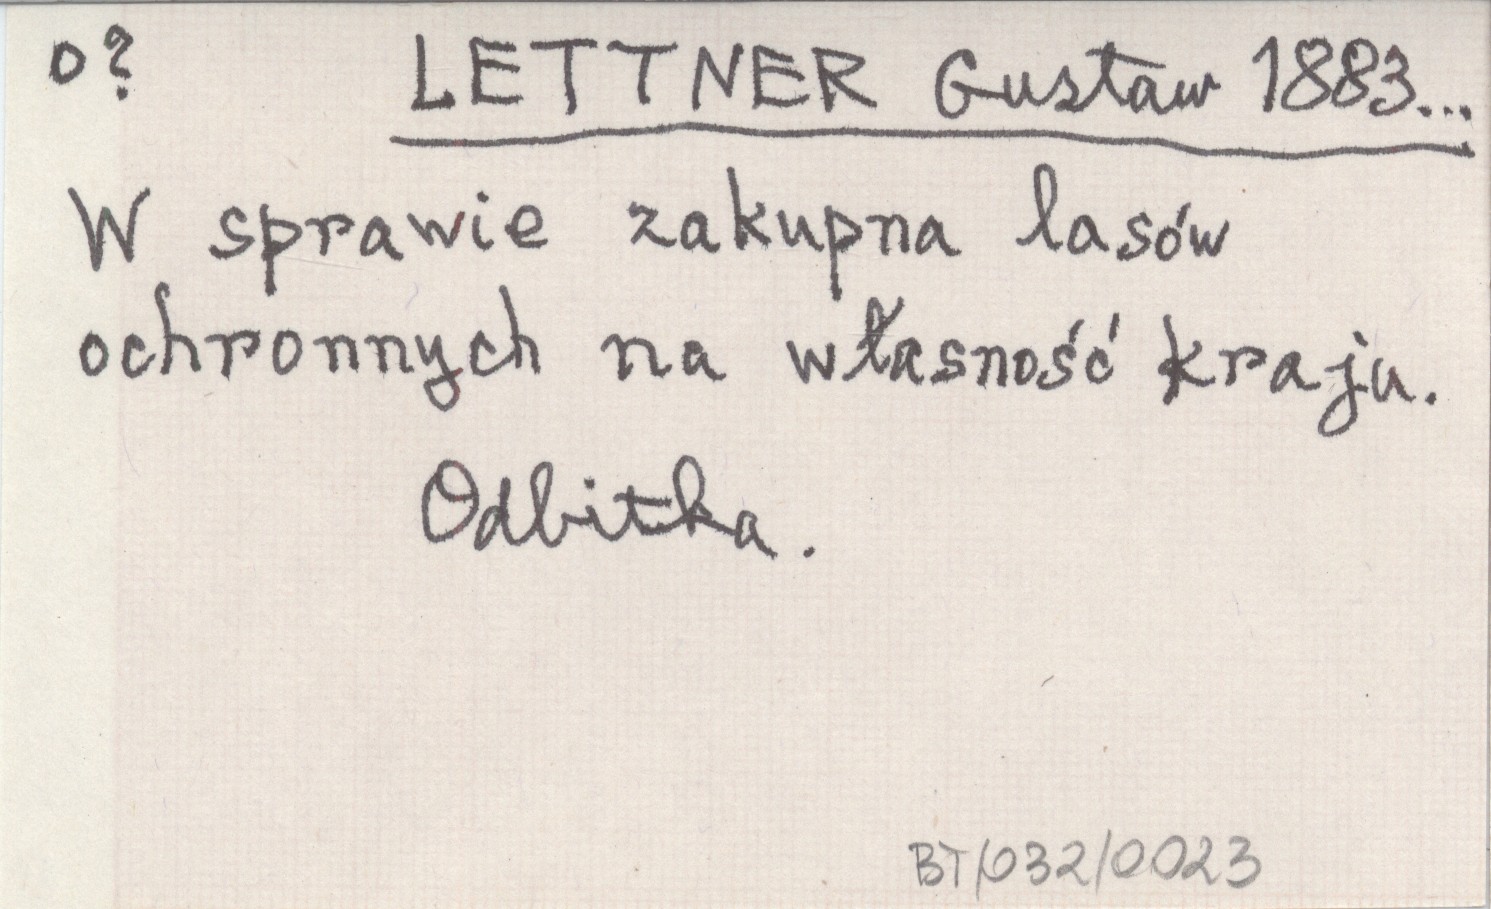 o? LETTNER Gustaw 1883...
W sprawie zakupna lasów
ochronnych na własność kraju.
Odbitka.
BT/032/0023